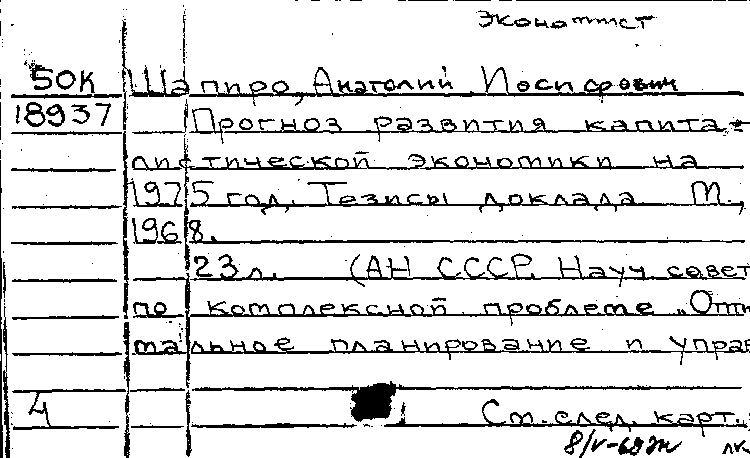 экономист
50К Шапиро, Анатолий Иосифович
18937 Прогноз развития капита-
листической экономики на
1975 год. Тезисы доклада М.,
1968.
23л. (АН СССР. Науч совет
по комплексной проблеме „Опти
мальное планирование и управ
4 См. след. карт.
8/V-69
лк